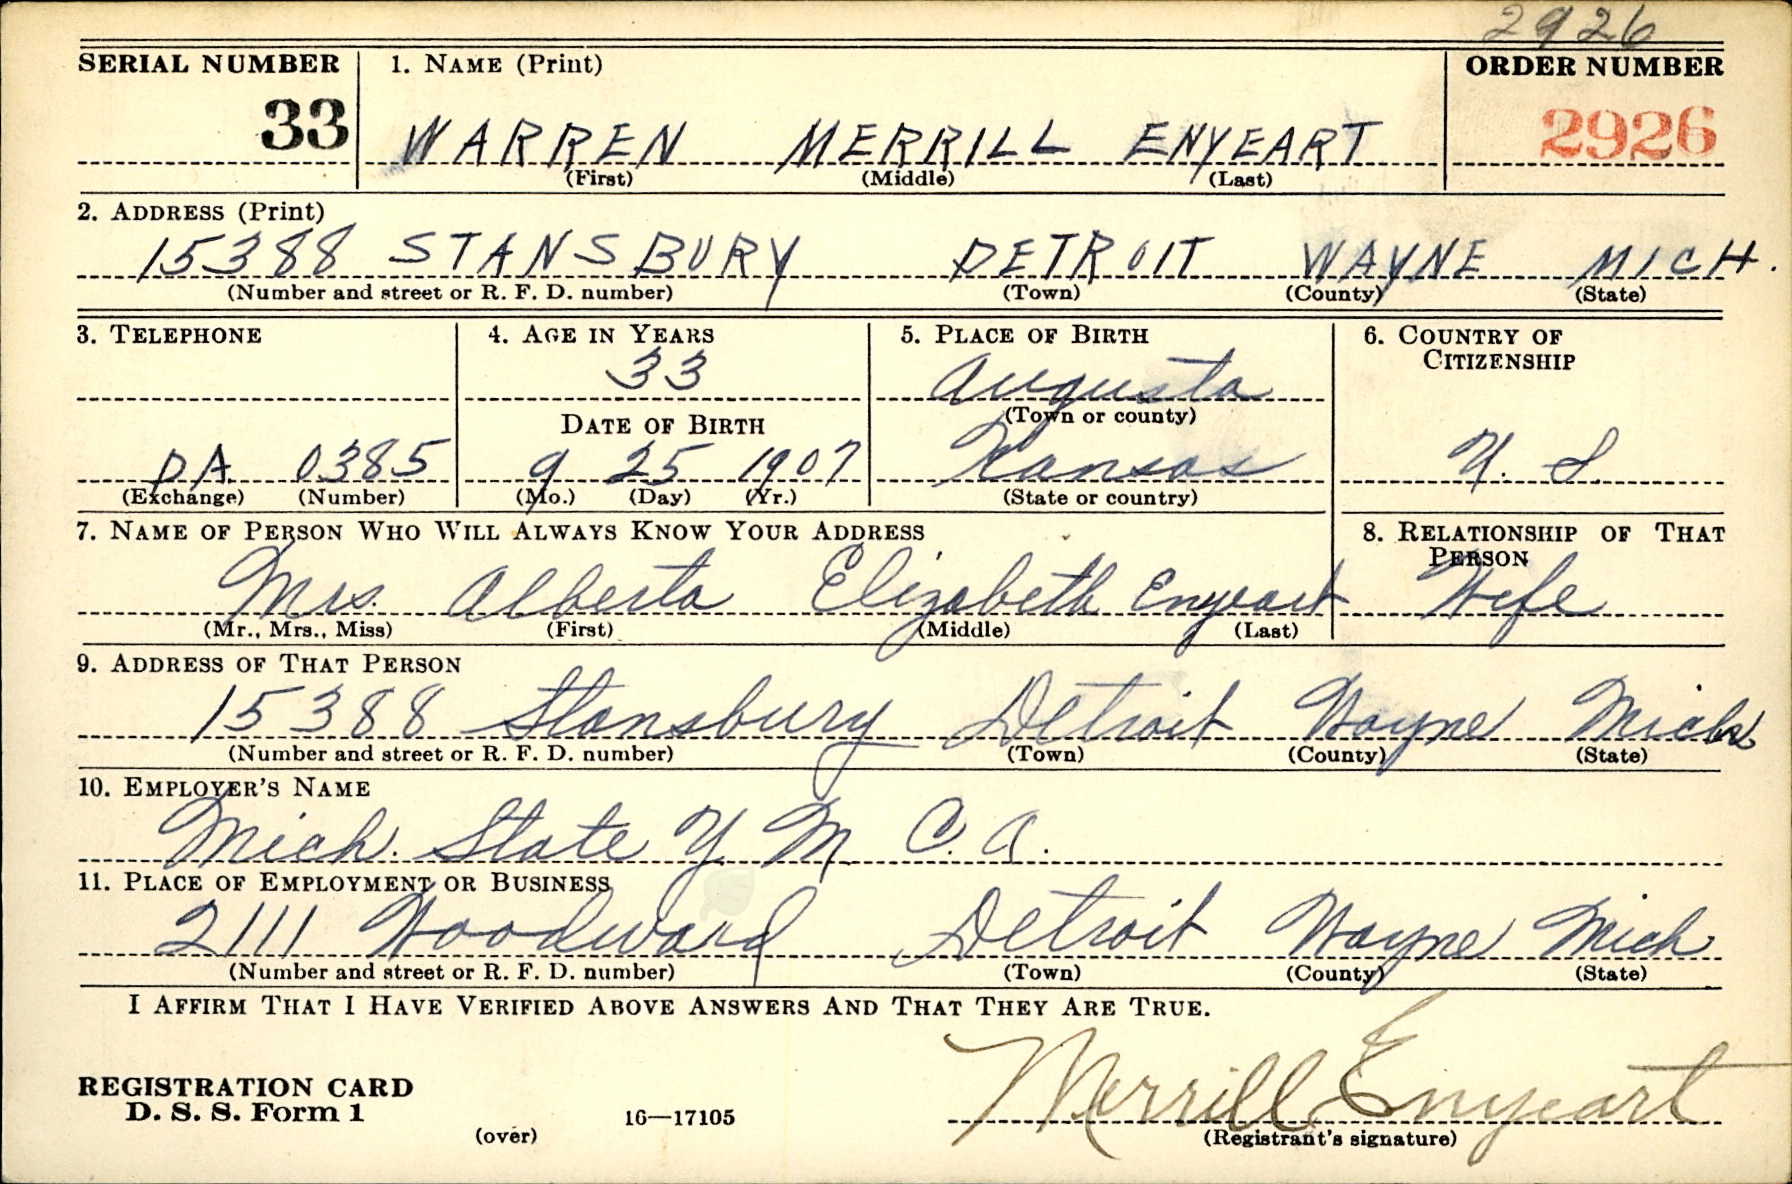 2926
SERIAL NUMBER 1. NAME (Print) ORDER NUMBER
33 WARREN MERRILL ENYEART 2926
(First) (Middle) (Last)
2. ADDRESS (Print)
15388 STANSBURY DETROIT WAYNE MICH.
(Number and street or R. F. D. number) (Town) (County) (State)
3. TELEPHONE 4. AGE IN YEARS 5. PLACE OF BIRTH 6. COUNTRY OF CITIZENSHIP
33 Augusta
DATE OF BIRTH (Town or county)
DA. 0385 9 25 1907 Kansas U. S.
(Exchange) (Number) (Mo.) (Day) (Yr.) (State or country)
7. NAME OF PERSON WHO WILL ALWAYS KNOW YOUR ADDRESS 8. RELATIONSHIP OF THAT PERSON
Mrs. Alberta Elizabeth Enyeart Wife
(Mr., Mrs., Miss) (First) (Middle) (Last)
9. ADDRESS OF THAT PERSON
15388 Stansbury Detroit Wayne Mich
(Number and street or R. F. D. number) (Town) (County) (State)
10. EMPLOYER'S NAME
Mich. State Y M. C. A.
11. PLACE OF EMPLOYMENT OR BUSINESS
2111 Woodward Detroit Wayne Mich
(Number and street or R. F. D. number) (Town) (County) (State)
I AFFIRM THAT I HAVE VERIFIED ABOVE ANSWERS AND THAT THEY ARE TRUE.
REGISTRATION CARD
D. S. S. Form 1 16—17105 Merrill Enyeart
(over) (Registrant's signature)